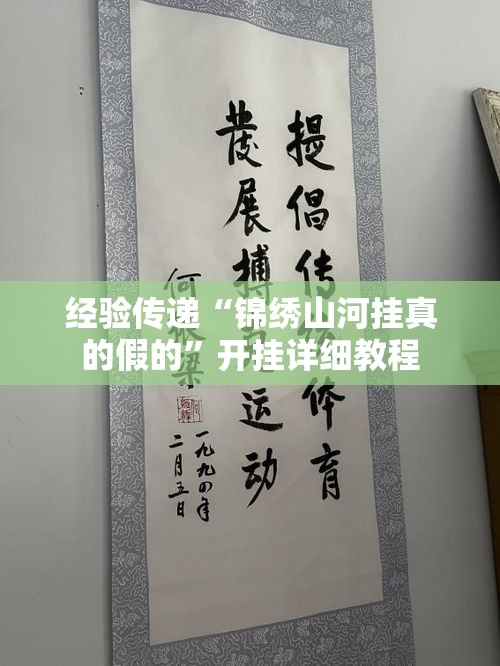 提倡传体育
發展搏运动
何梁
一九九四年
二月五日
经验传递“锦绣山河挂真
的假的”开挂详细教程